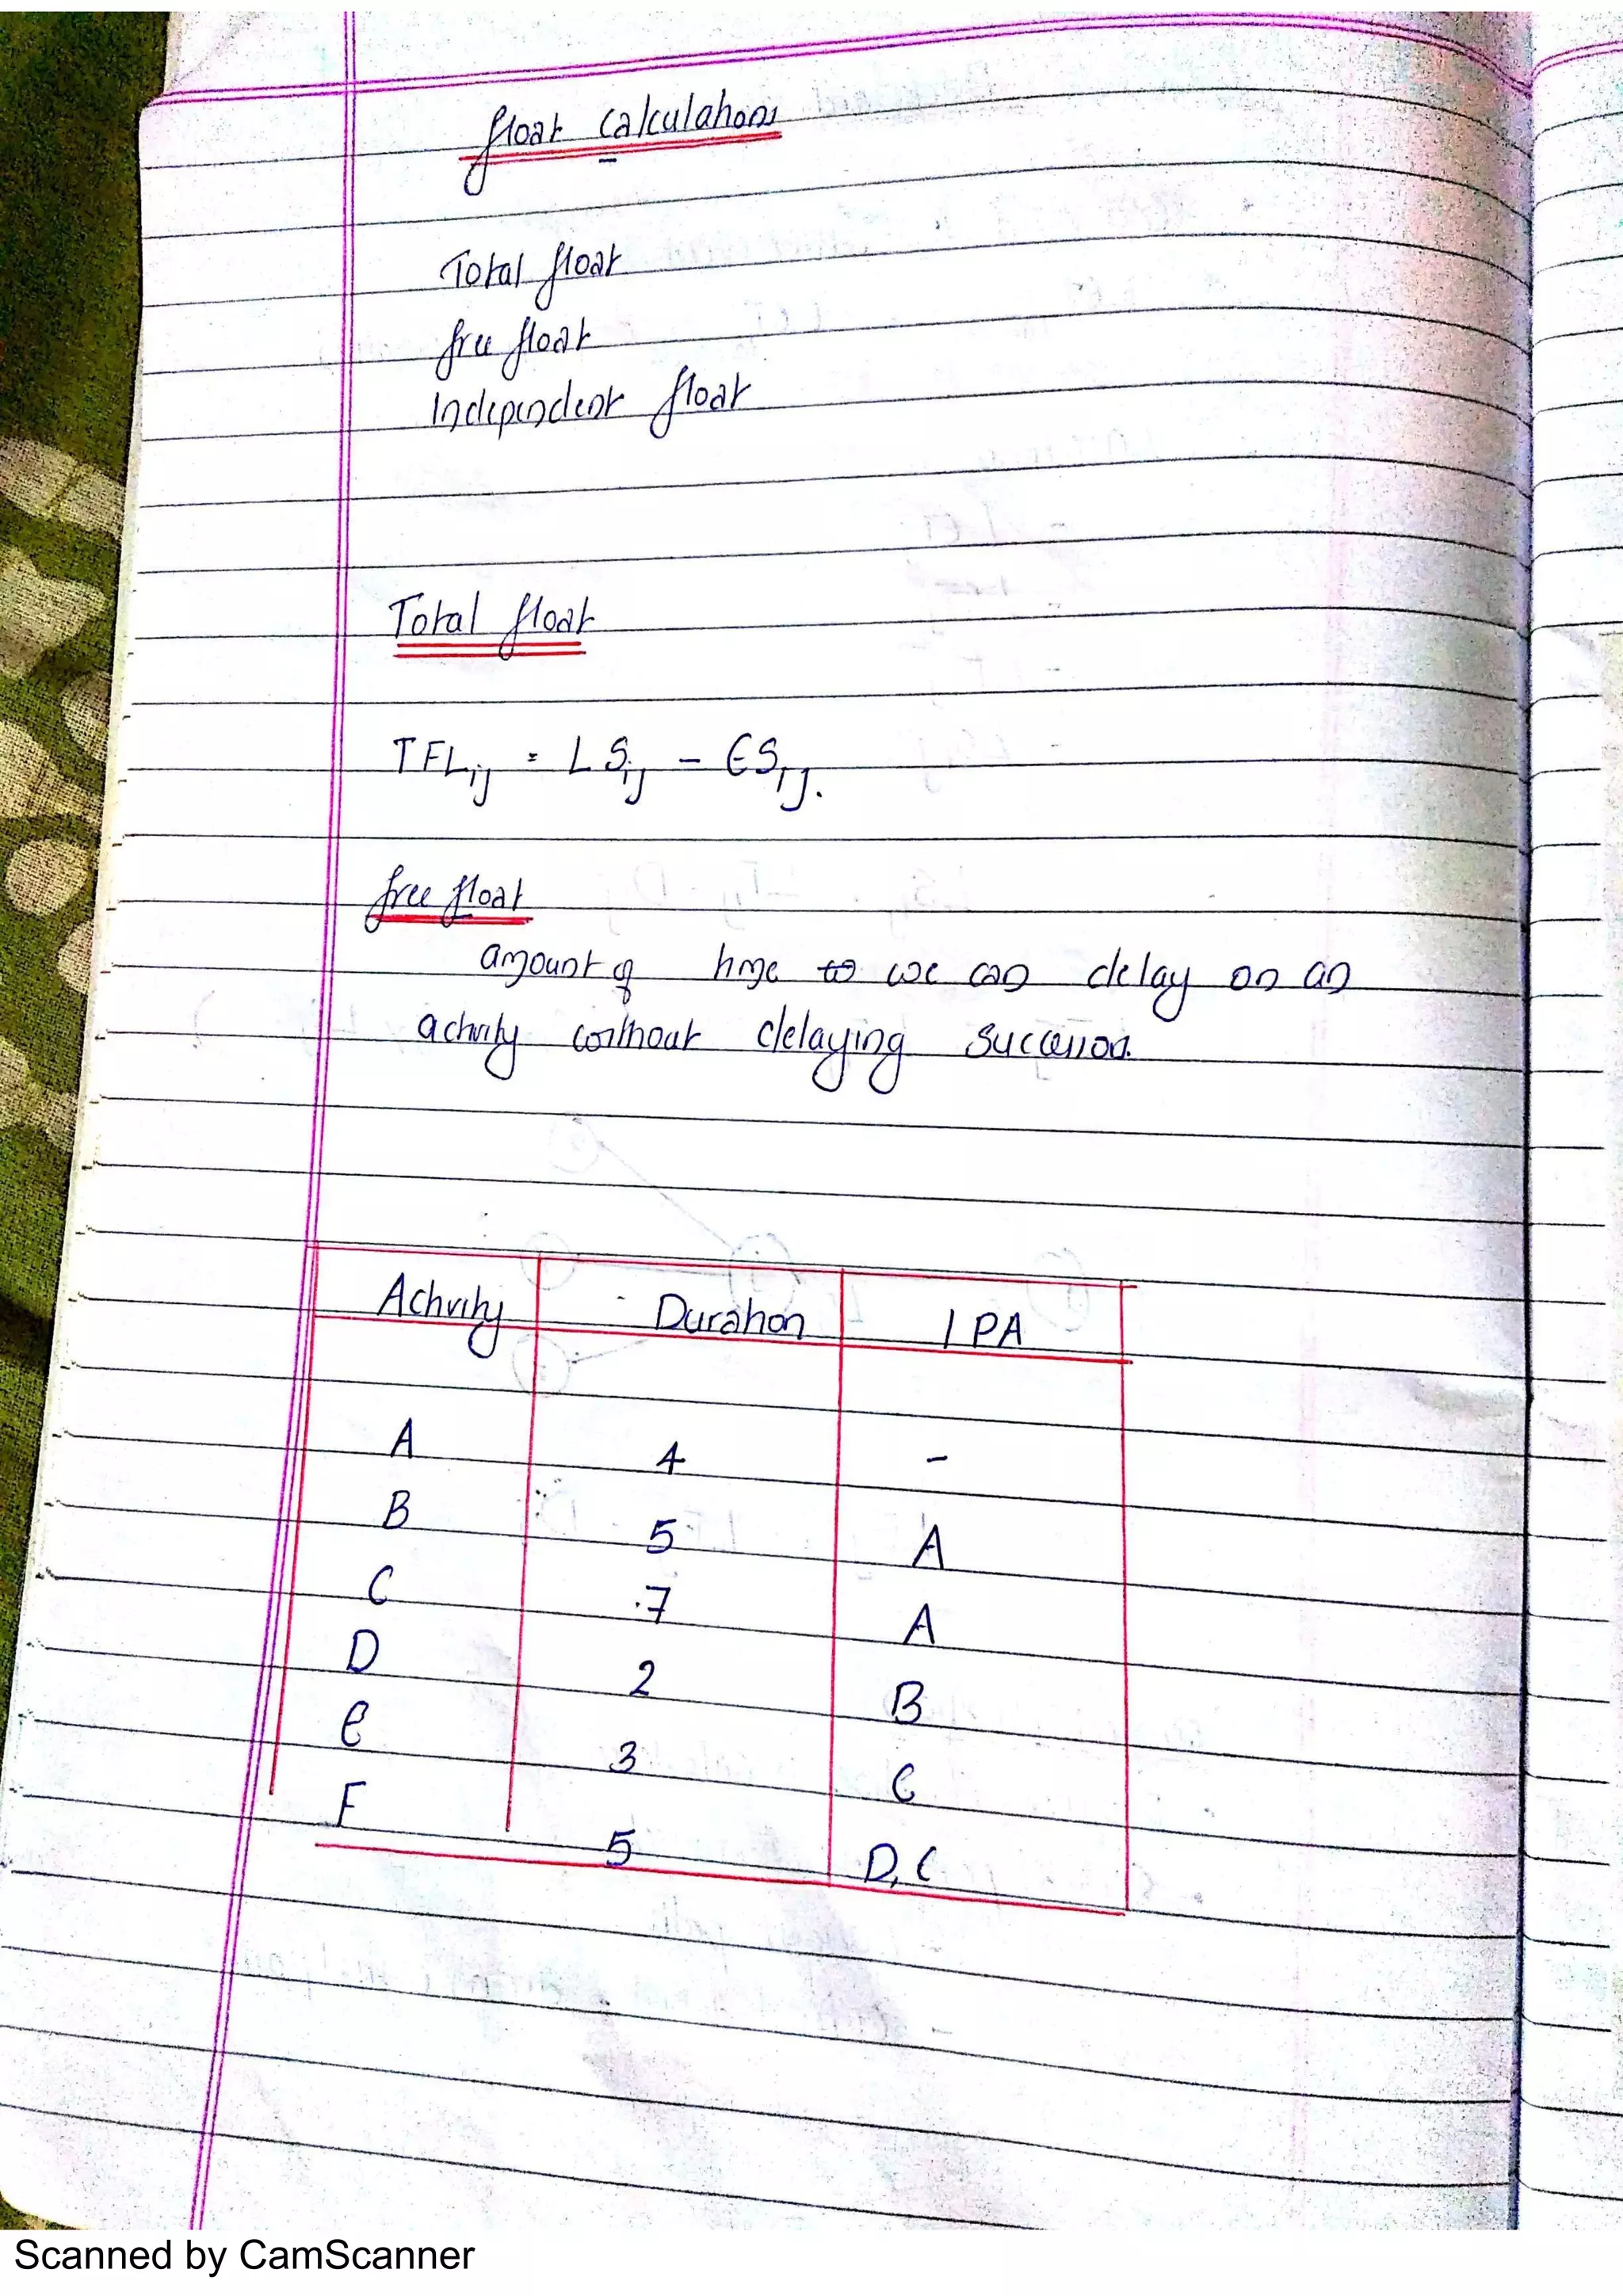 float calculations
Total float
free float
Independent float
Total float
TFLij = LSij - ESij.
free float
amount of time to we can delay on an
activity without delaying successor.
Activity Duration IPA
A 4 -
B 5 A
C 7 A
D 2 B
E 3 C
F 5 D, C
Scanned by CamScanner